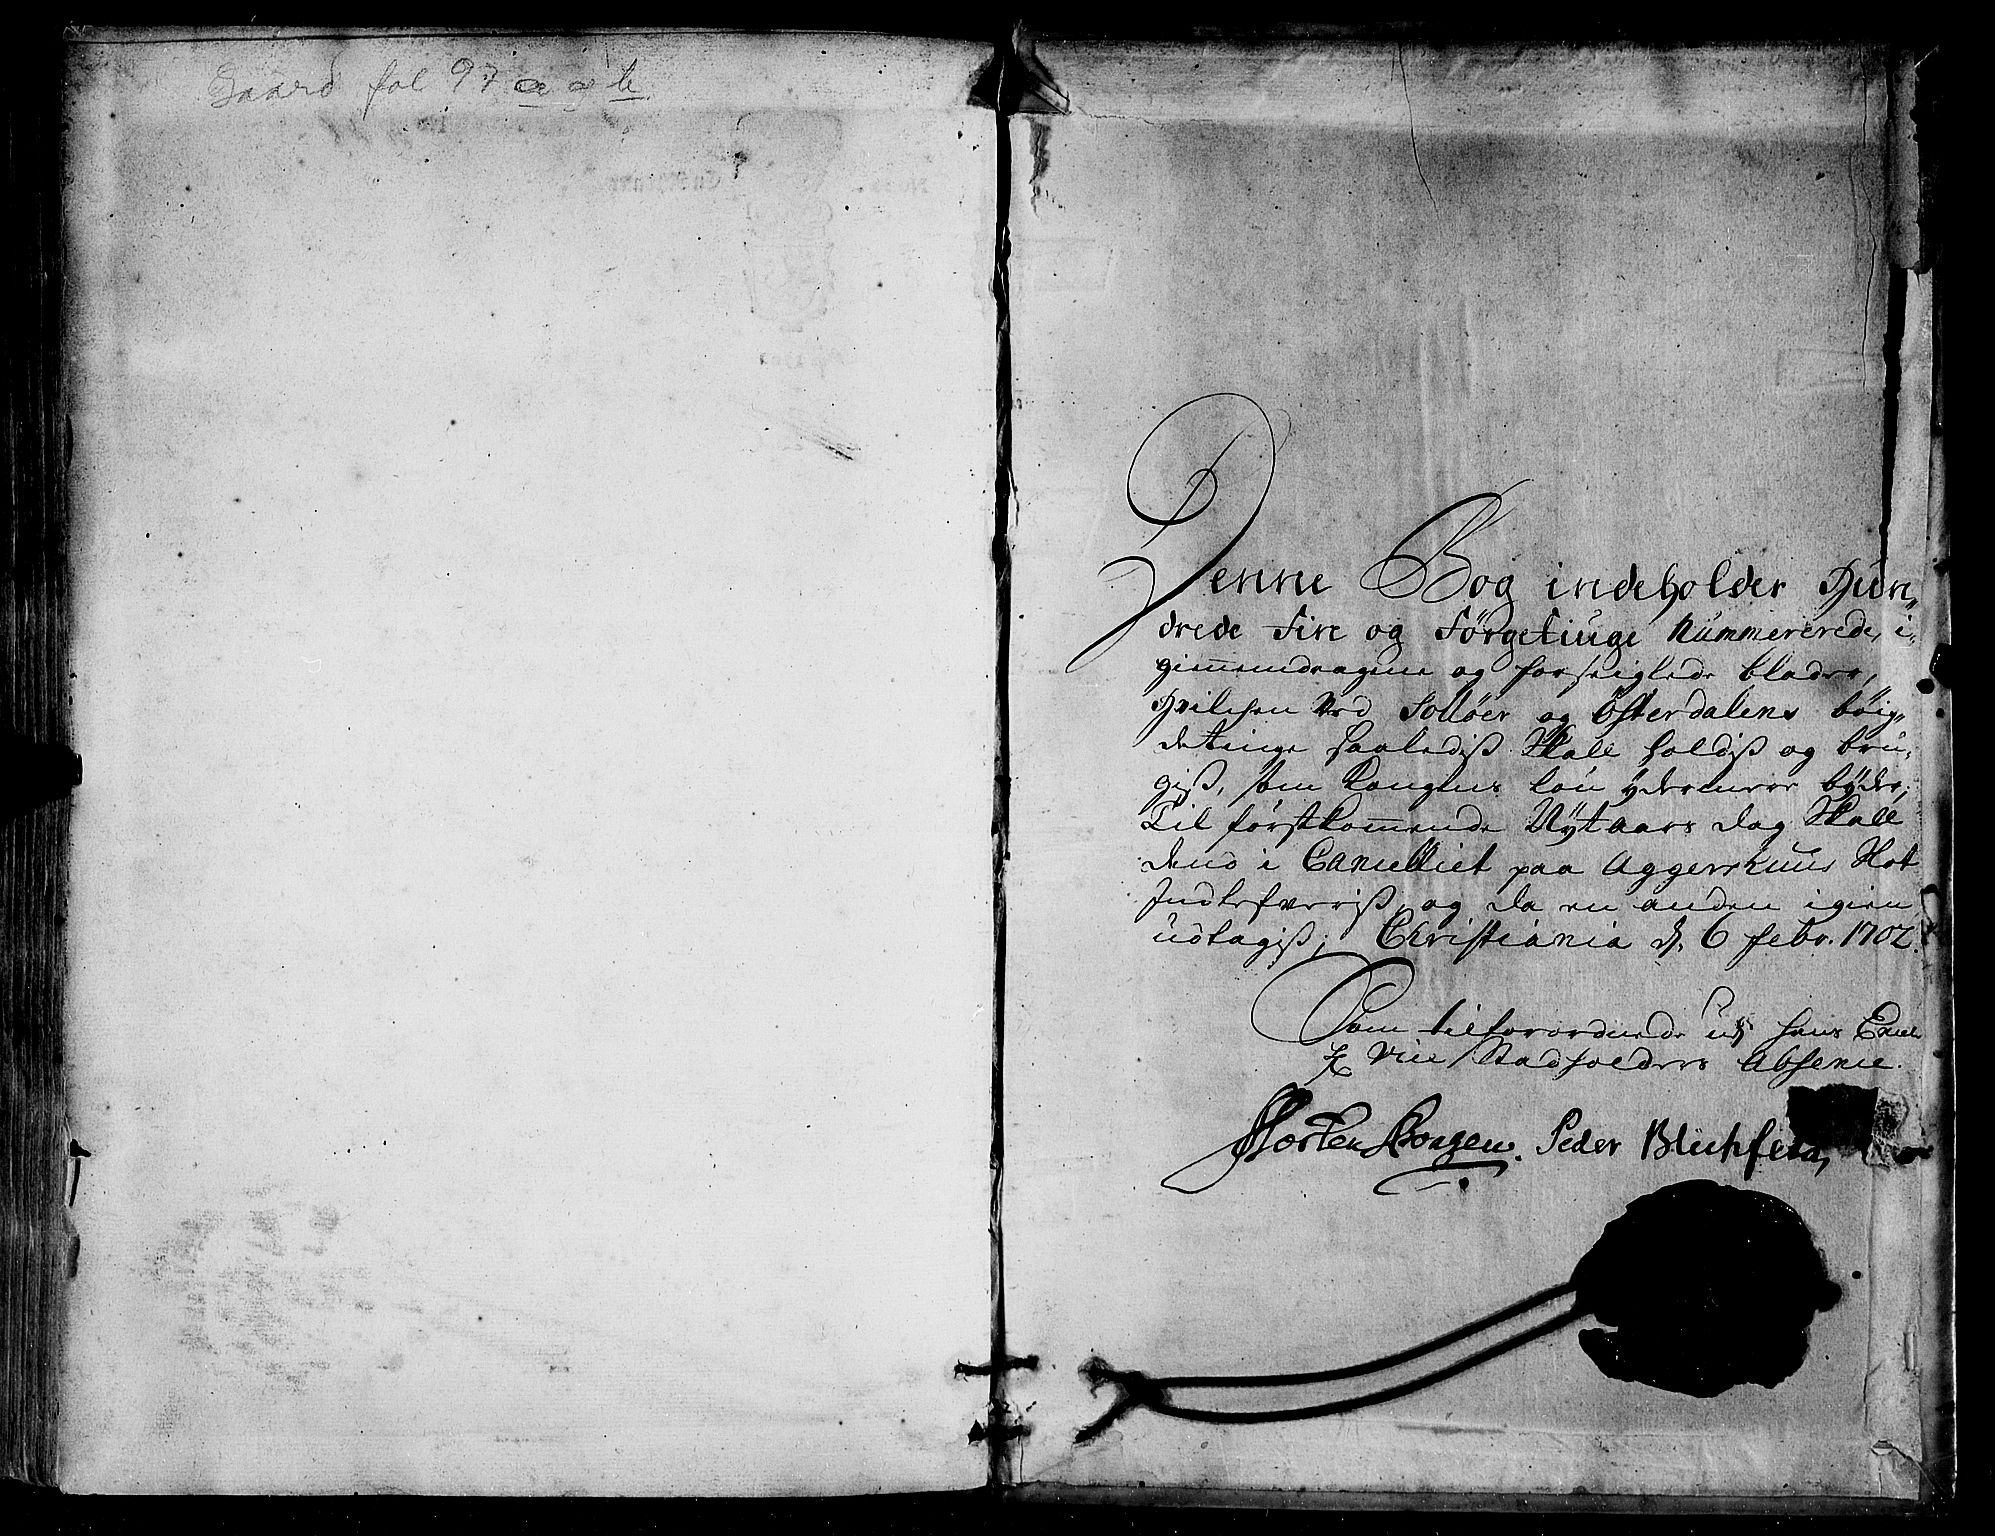 Gaard fol 97 a og b
Denne Bog indeholder Hun„
drede Fire og Førgetiuge Nummererede, i„
giemmendragne og forseiglede blader,
Hvilchen ved Solløer og Østerdalens böig„
deting saalediß Skall holdiß og bru„
giß, som Kongens lou ydermere byder,
Til förstkommende Nytaars dag Skall
dend i Cancelliet paa Aggershuus Slot
Indlefveriß, og da en anden igien
udtagiß; Christiania d. 6 febr. 1702.
Som tilforordnede udj hans Excell
Hr Vice Stadholders Absence.
Morten Borgen. Peder Blichfeld,